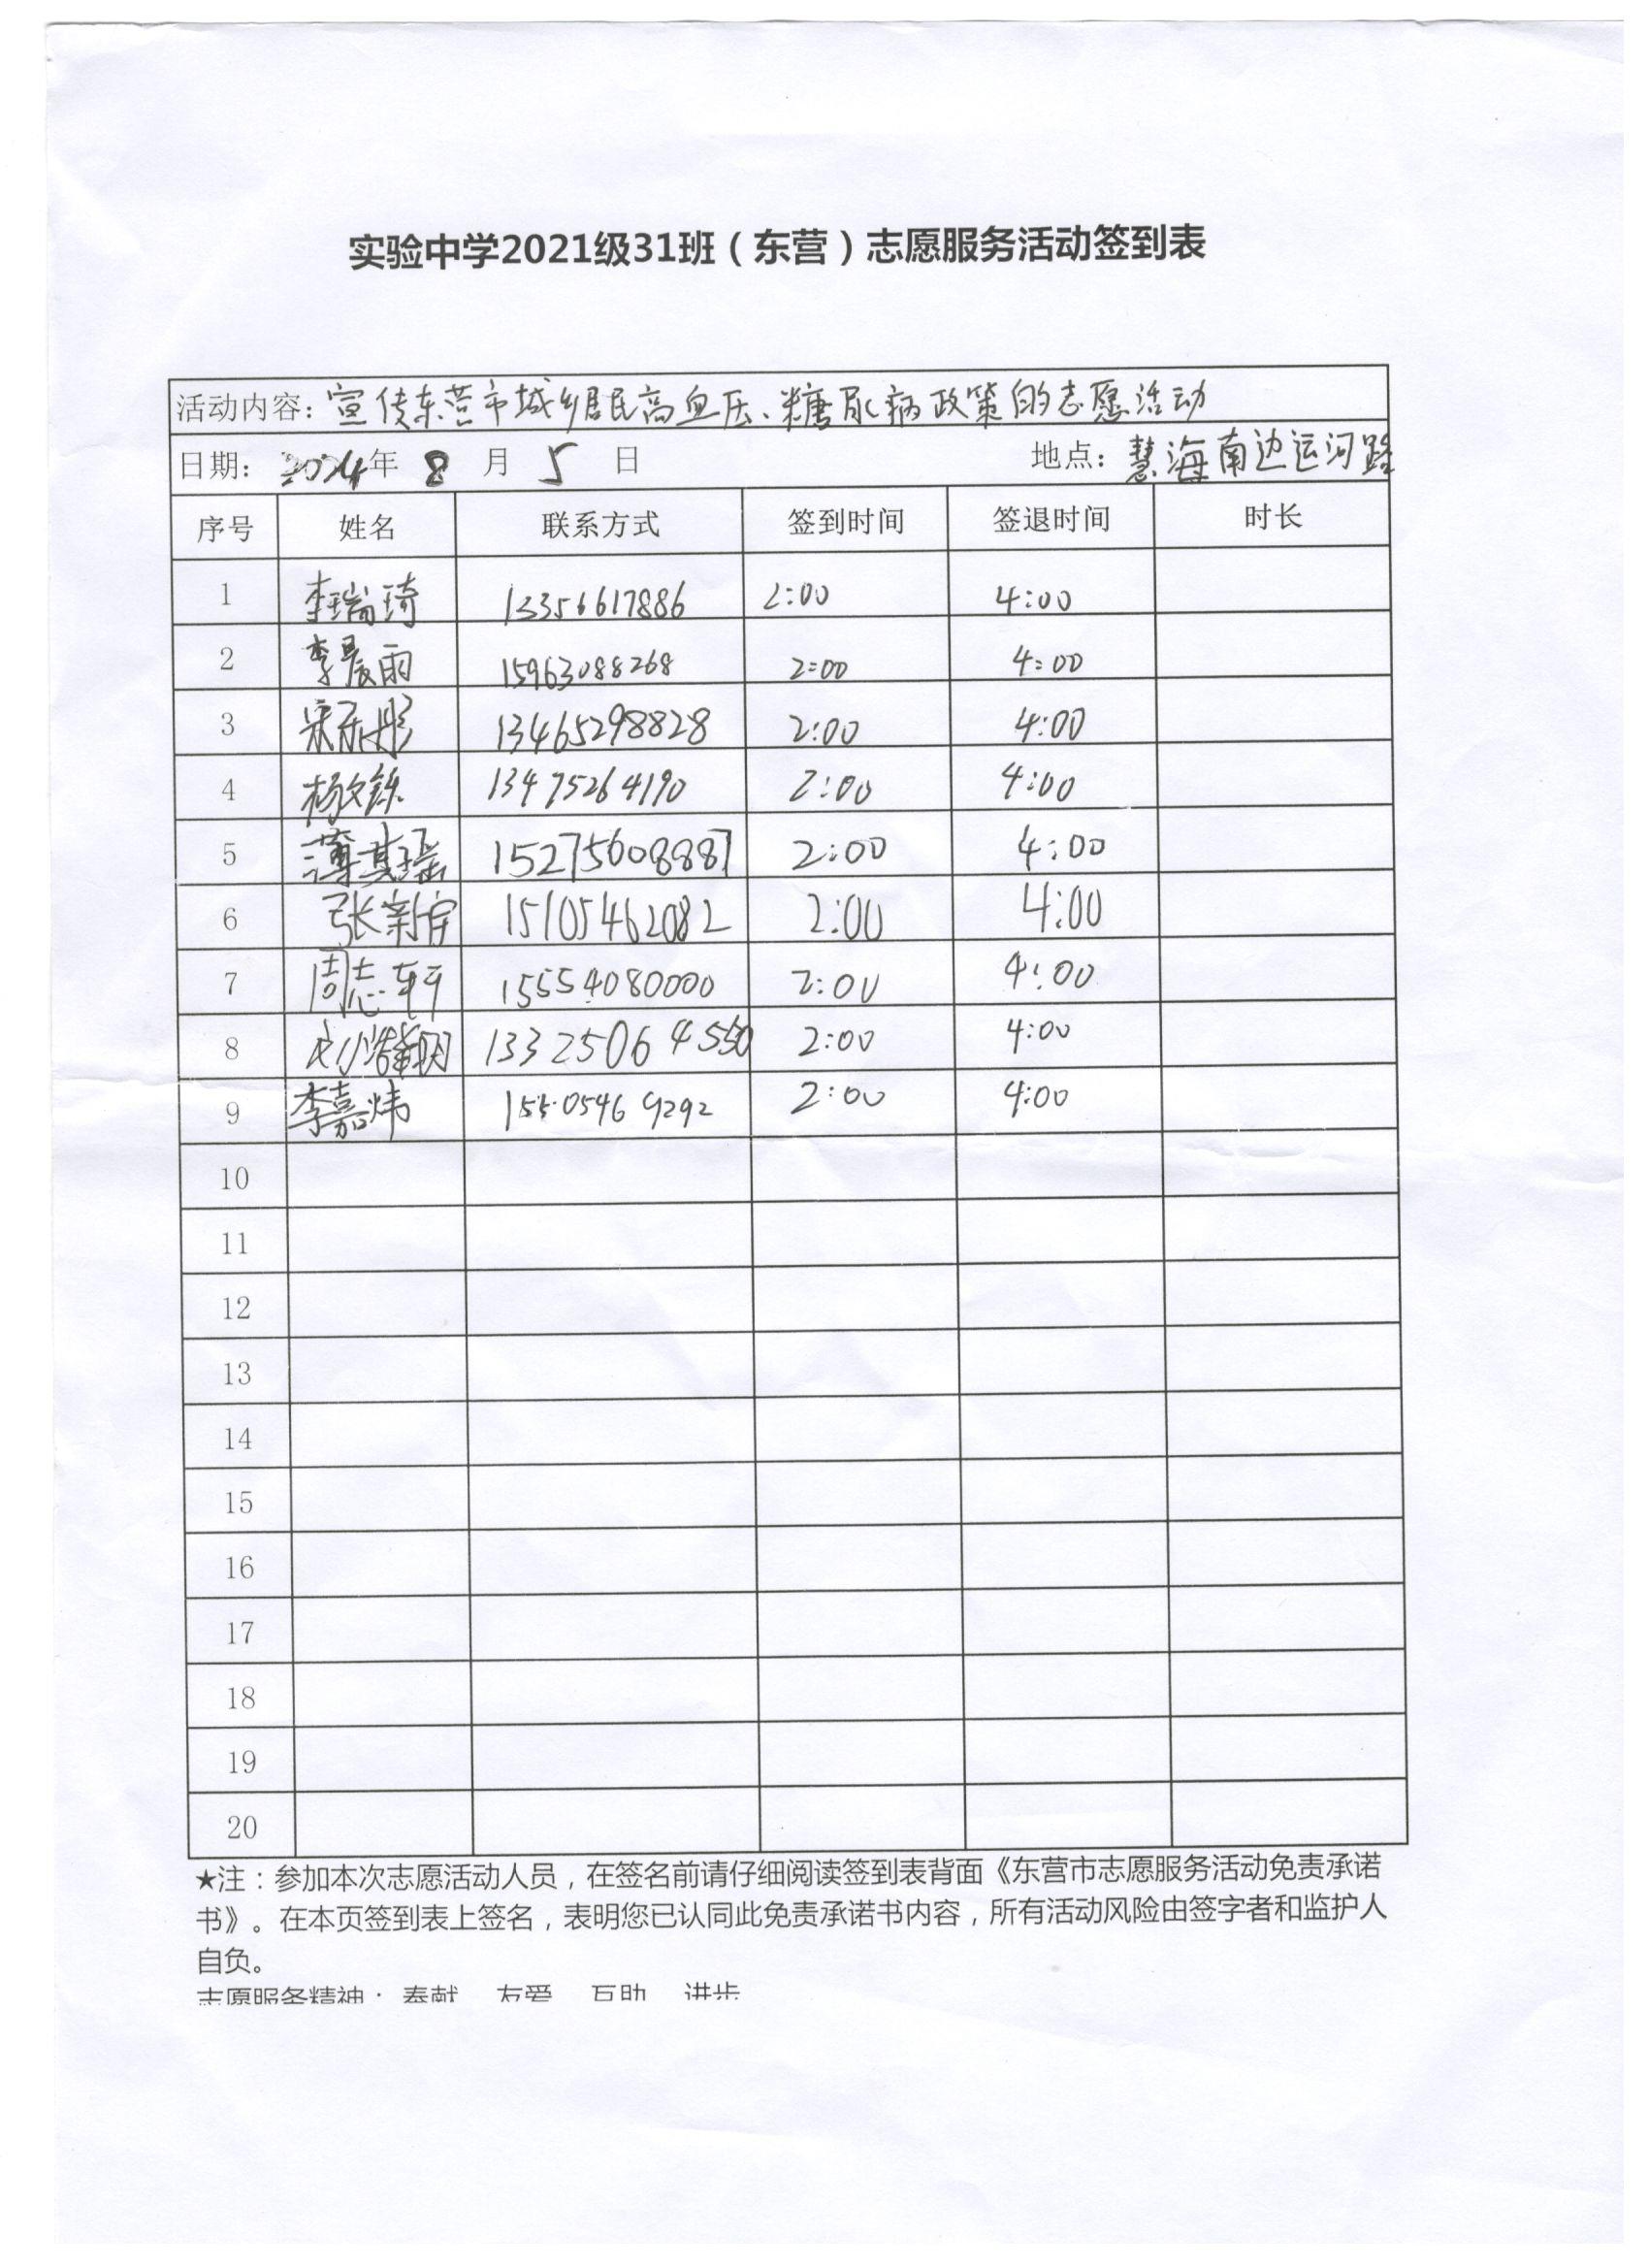 实验中学2021级31班（东营）志愿服务活动签到表
活动内容：宣传东营市城乡居民高血压、糖尿病政策的志愿活动
日期：2024年 8 月 5 日 地点：慧海南边运河路
序号 姓名 联系方式 签到时间 签退时间 时长
1 李瑞琦 13356617886 2:00 4:00
2 李晨雨 15963088268 2:00 4:00
3 13465298828 2:00 4:00
4 13475264190 2:00 4:00
5 薄其瑶 15275608887 2:00 4:00
6 张新宇 15105462082 2:00 4:00
7 周志轩 15554080000 2:00 4:00
8 13325064550 2:00 4:00
9 李嘉炜 155 0546 9292 2:00 4:00
10
11
12
13
14
15
16
17
18
19
20
★注：参加本次志愿活动人员，在签名前请仔细阅读签到表背面《东营市志愿服务活动免责承诺
书》。在本页签到表上签名，表明您已认同此免责承诺书内容，所有活动风险由签字者和监护人
自负。
志愿服务精神： 奉献 友爱 互助 进步